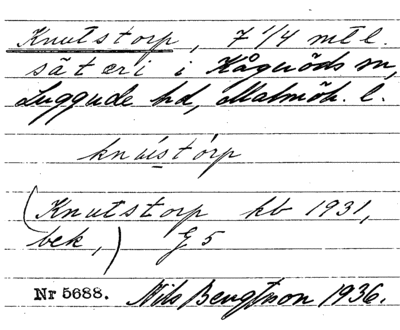 Knutstorp, 7 1/4 mtl.
säteri i Kågeröds sn,
Luggude hd, Malmöh. l.
knústórp
(Knutstorp kb 1931,
bek,) G5
Nr 5688. Nils Bengtsson 1936.